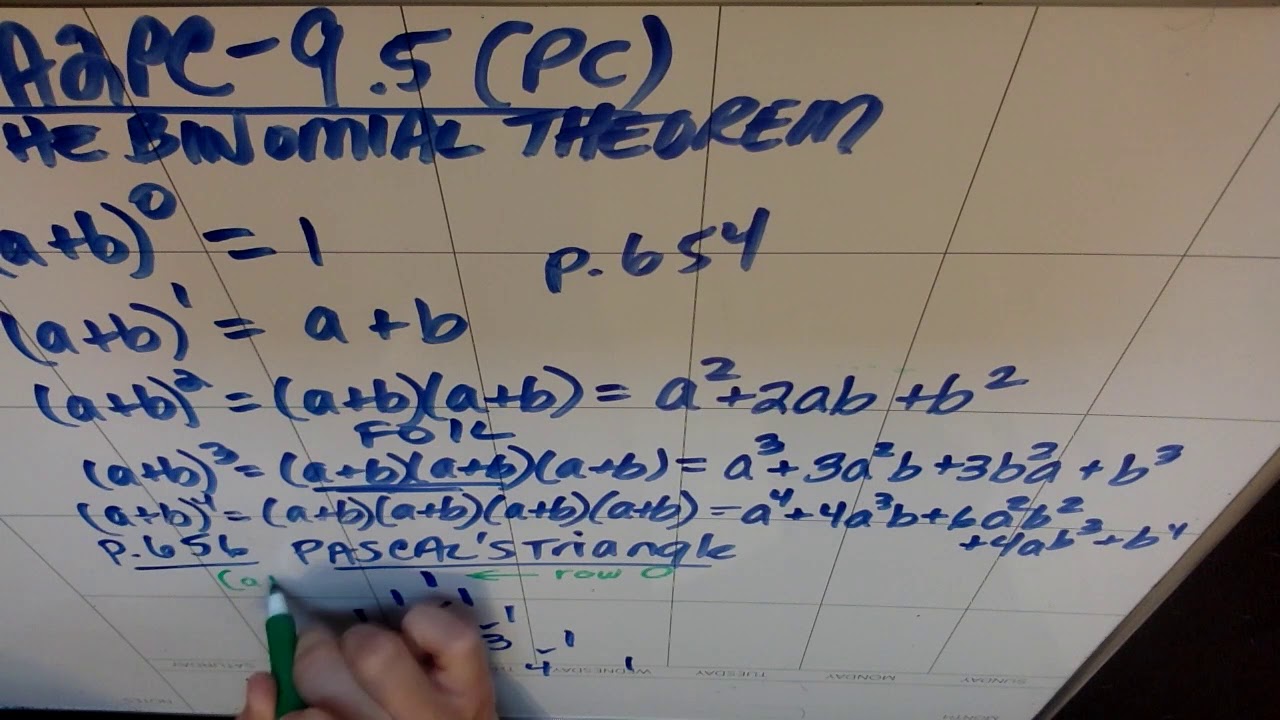 A2PC-9.5 (PC)
HE BINOMIAL THEOREM
(a+b)⁰ = 1
p.654
(a+b)¹ = a+b
(a+b)² = (a+b)(a+b) = a²+2ab+b²
FOIL
(a+b)³ = (a+b)(a+b)(a+b) = a³+3a²b+3b²a+b³
(a+b)⁴ = (a+b)(a+b)(a+b)(a+b) = a⁴+4a³b+6a²b²
+4ab³+b⁴
p.656 PASCAL'S Triangle
(a 1 ← row 0
1 1
1 1
3 1
4 1
SATURDAY WEDNESDAY TUESDAY MONDAY SUNDAY
NOTES MONTH